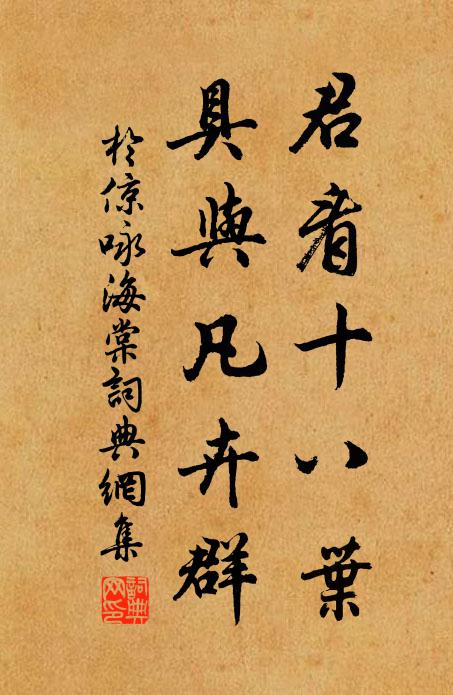 君看十八葉
具與凡卉群
於倞咏海棠詞典網集
詞典网印